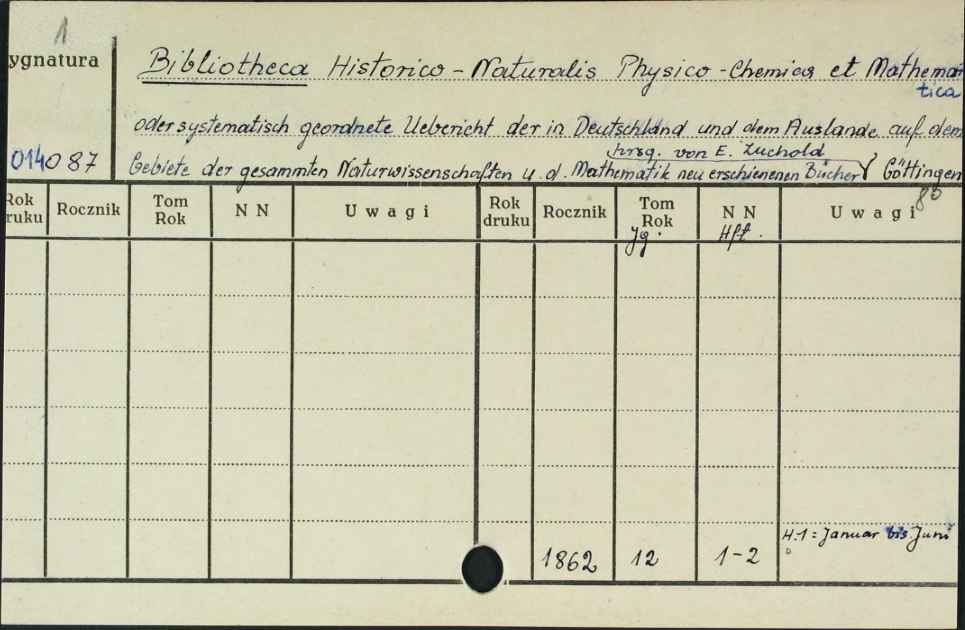 1
ygnatura
Bibliotheca Historico-Naturalis Physico-Chemica et Mathema-
tica
oder systematisch geordnete Uebericht der in Deutschland und dem Auslande auf dem
hrsg. von E. Zuchold
014087 Gebiete der gesammten Naturwissenschaften u. d. Mathematik neu erschienenen Bücher Göttingen
85
Rok druku Rocznik Tom Rok N N Uwagi Rok druku Rocznik Tom Rok N N Uwagi
Jg. Hft.
H.1: Januar bis Juni
1862 12 1-2